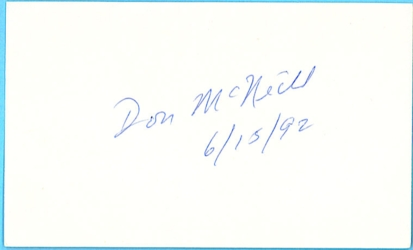 Don McNeill
6/15/92